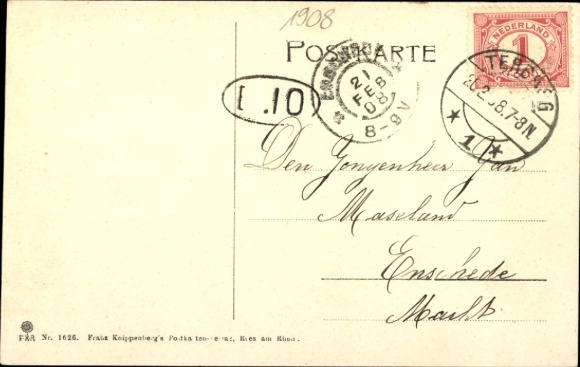 1908
NEDERLAND
1
POSTKARTE
21
FEB
08
8-9V
20.2.08.7-8N.
* 1 *
.10
Den Jongenheer Jan
Maseland
Enschede
Markt
Nr. 1626. Franz Knippenberg's Postkartenverlag, Rees am Rhein.